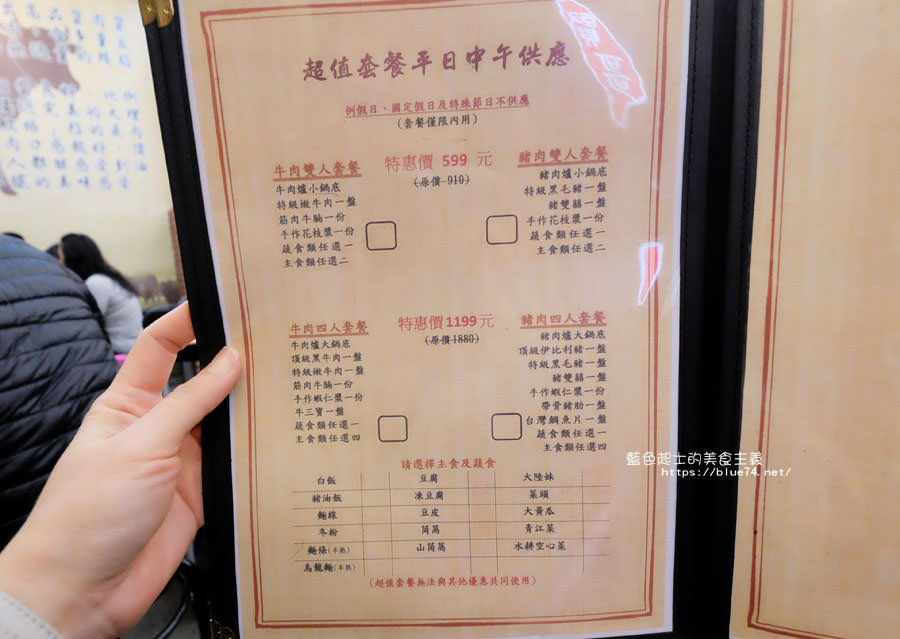 超值套餐平日中午供應
例假日、國定假日及特殊節日不供應
(套餐僅限內用)
牛肉雙人套餐
牛肉爐小鍋底
特級嫩牛肉一盤
筋肉牛腩一份
手作花枝漿一份
蔬食類任選一
主食類任選二
特惠價 599 元
(原價 910)
豬肉雙人套餐
豬肉爐小鍋底
特級黑毛豬一盤
豬雙囍一盤
手作花枝漿一份
蔬食類任選一
主食類任選二
牛肉四人套餐
牛肉爐大鍋底
頂級黑牛肉一盤
特級嫩牛肉一盤
筋肉牛腩一份
手作蝦仁漿一份
牛三寶一盤
蔬食類任選一
主食類任選四
特惠價 1199 元
(原價1880)
豬肉四人套餐
豬肉爐大鍋底
頂級伊比利豬一盤
特級黑毛豬一盤
豬雙囍一盤
手作蝦仁漿一份
帶骨豬肋一盤
台灣鯛魚片一盤
蔬食類任選一
主食類任選四
請選擇主食及蔬食
白飯 豆腐 大陸妹
豬油飯 凍豆腐 菜頭
麵線 豆皮 大黃瓜
冬粉 茼萵 青江菜
麵條(半熟) 山茼萵 水耕空心菜
烏龍麵(半熟)
(超值套餐無法與其他優惠共同使用)
藍色起士的美食主義
https://blue74.net/